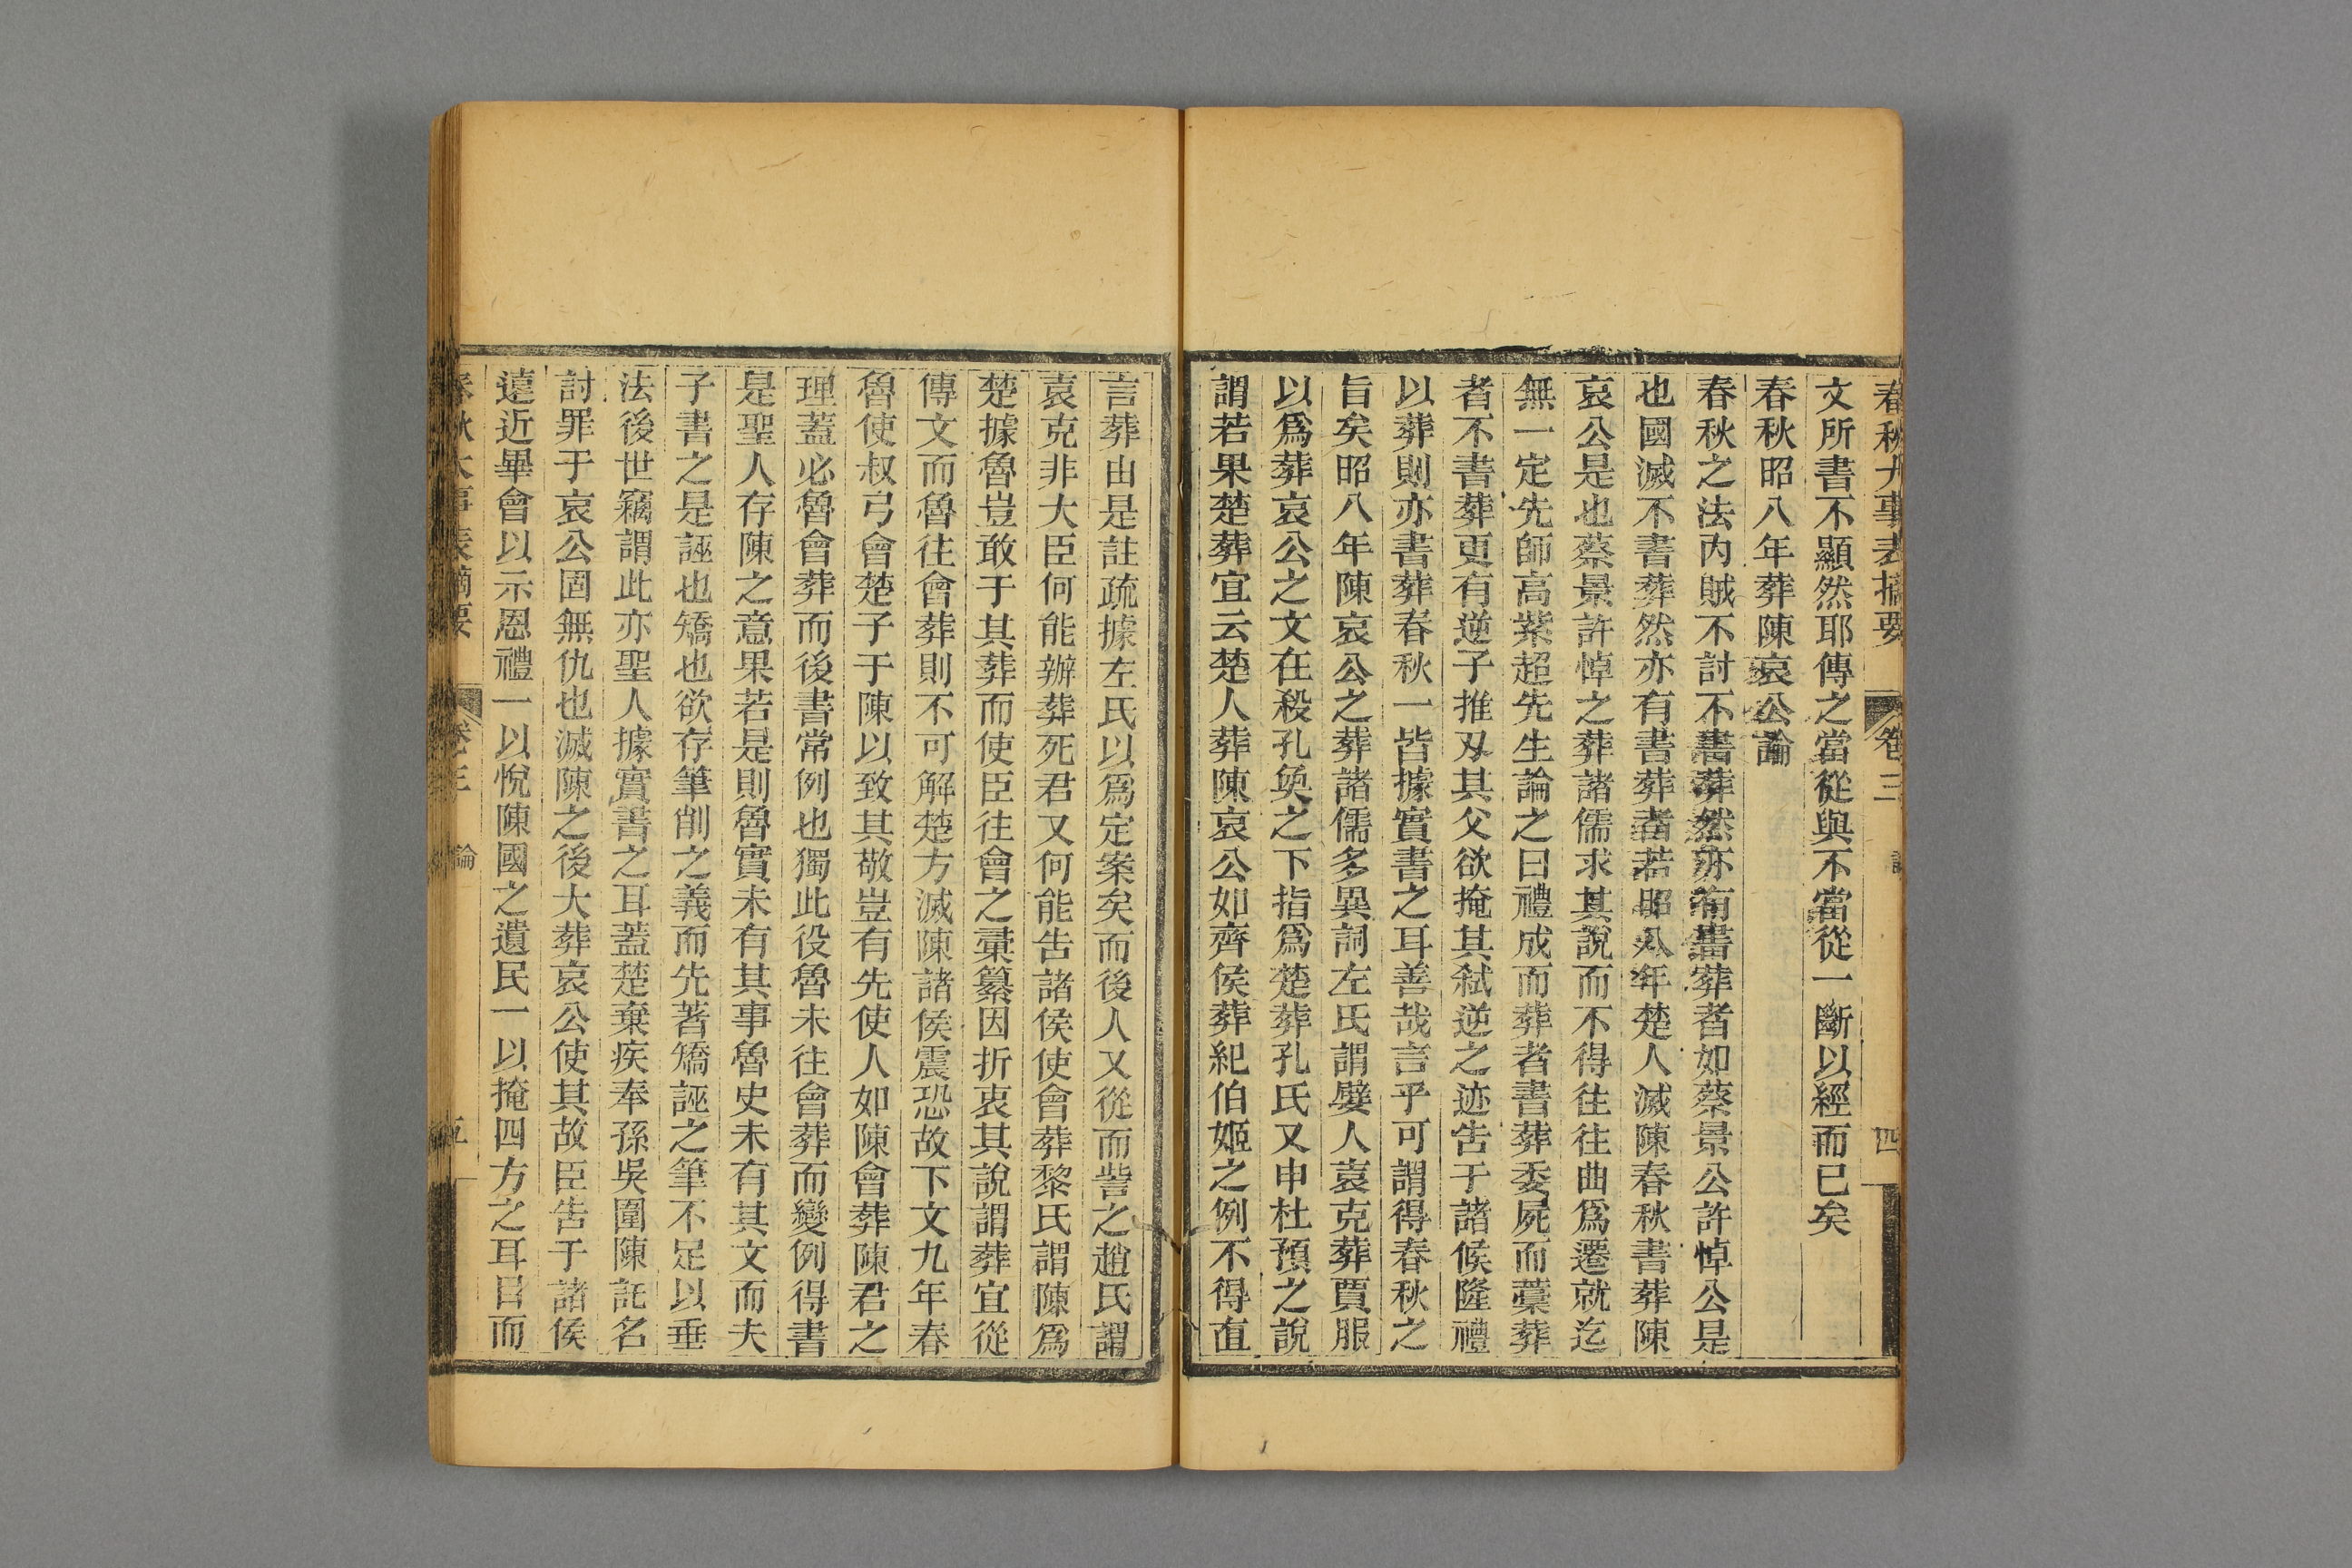 春秋大事表摘要 卷三 論 四
文所書不顯然耶傳之當從與不當從一斷以經而已矣
春秋昭八年葬陳哀公論
春秋之法內賊不討不書葬然亦有書葬者如蔡景公許悼公是
也國滅不書葬然亦有書葬者若昭八年楚人滅陳春秋書葬陳
哀公是也蔡景許悼之葬諸儒求其說而不得往往曲爲遷就迄
無一定先師高紫超先生論之曰禮成而葬者書葬委屍而藁葬
者不書葬更有逆子推刃其父欲掩其弒逆之迹告于諸侯隆禮
以葬則亦書葬春秋一皆據實書之耳善哉言乎可謂得春秋之
旨矣昭八年陳哀公之葬諸儒多異詞左氏謂嬖人袁克葬賈服
以爲葬哀公之文在殺孔奐之下指爲楚葬孔氏又申杜預之說
謂若果楚葬宜云楚人葬陳哀公如齊侯葬紀伯姬之例不得直
言葬由是註疏據左氏以爲定案矣而後人又從而訾之趙氏謂
袁克非大臣何能辦葬死君又何能告諸侯使會葬黎氏謂陳爲
楚據魯豈敢于其葬而使臣往會之彙纂因折衷其說謂葬宜從
傳文而魯往會葬則不可解楚方滅陳諸侯震恐故下文九年春
魯使叔弓會楚子于陳以致其敬豈有先使人如陳會葬陳君之
理蓋必魯會葬而後書常例也獨此役魯未往會葬而變例得書
是聖人存陳之意果若是則魯實未有其事魯史未有其文而夫
子書之是誣也矯也欲存筆削之義而先著矯誣之筆不足以垂
法後世竊謂此亦聖人據實書之耳蓋楚棄疾奉孫吳圍陳託名
討罪于哀公固無仇也滅陳之後大葬哀公使其故臣告于諸侯
遠近畢會以示恩禮一以悅陳國之遺民一以掩四方之耳目而
春秋大事表摘要 卷三 論 五